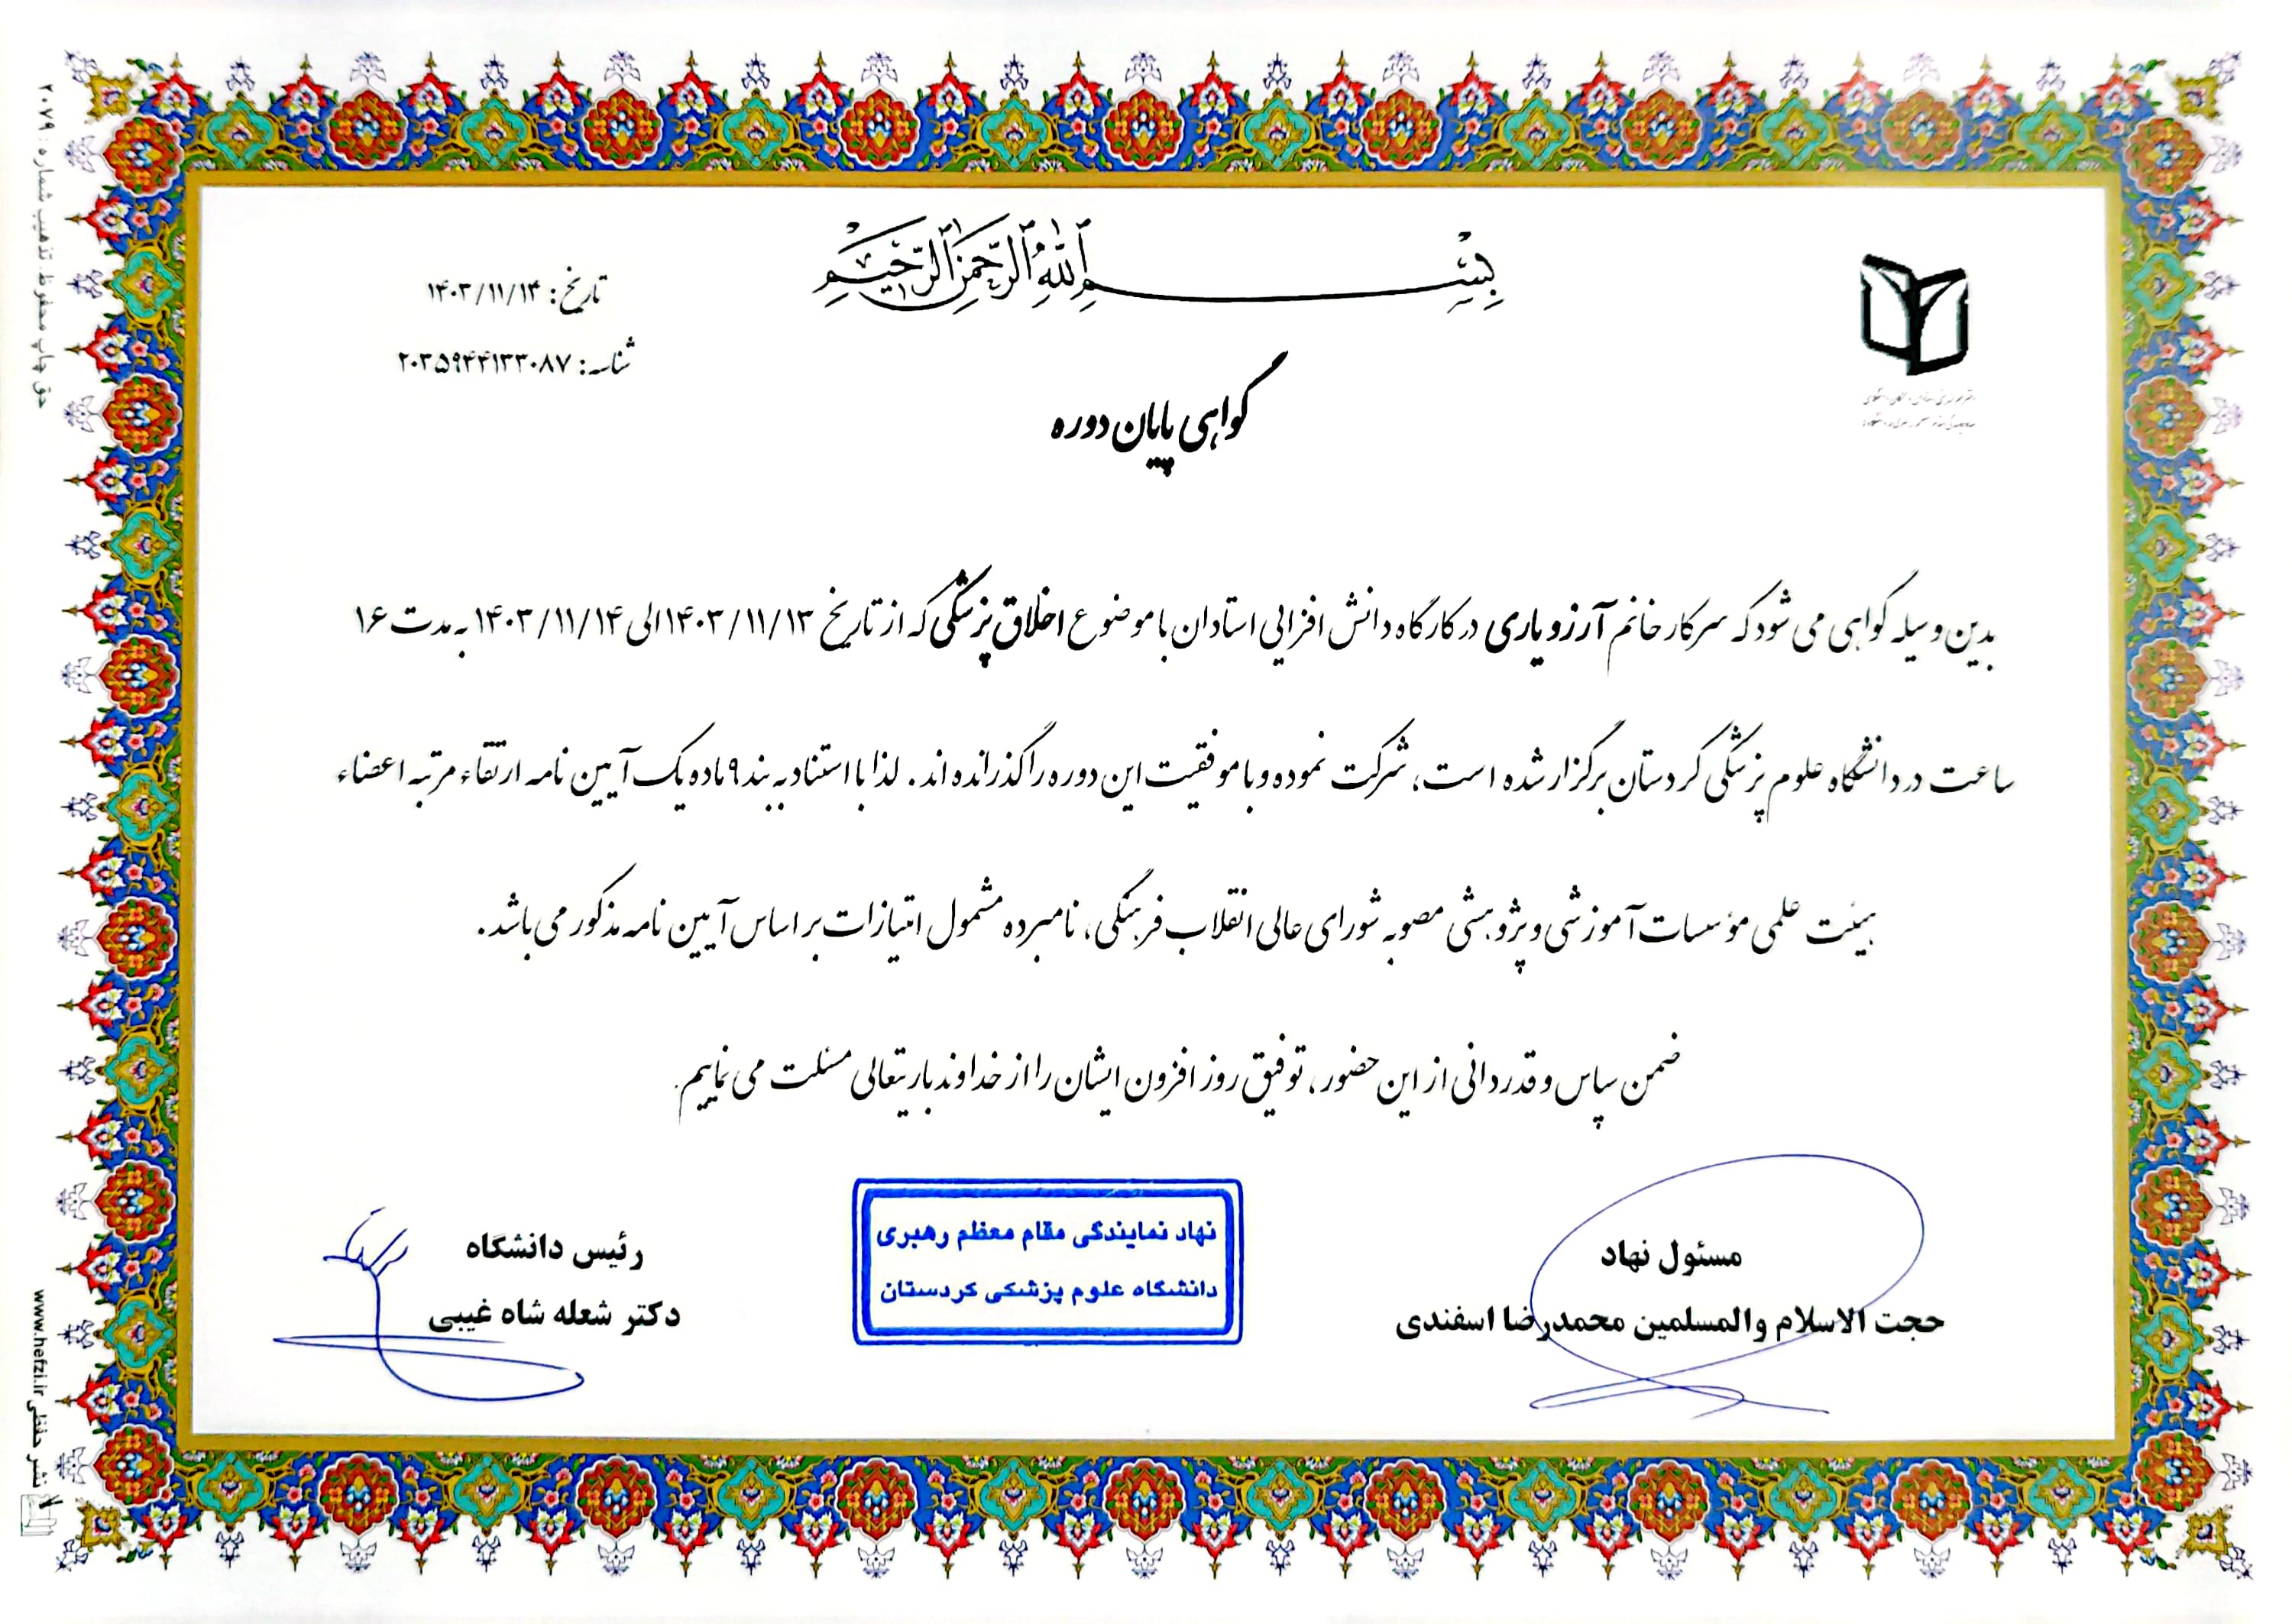 بسم الله الرحمن الرحیم
تاریخ: ۱۴۰۳/۱۱/۱۴
شناسه: ۲۰۳۵۹۴۴۱۳۳۰۸۷
گواهی پایان دوره
بدین وسیله گواهی می شود که سرکار خانم آرزو یاری در کارگاه دانش افزایی استادان با موضوع اخلاق پزشکی که از تاریخ ۱۴۰۳/۱۱/۱۳ الی ۱۴۰۳/۱۱/۱۴ به مدت ۱۶
ساعت در دانشگاه علوم پزشکی کردستان برگزار شده است، شرکت نموده و با موفقیت این دوره را گذرانده اند. لذا با استناد به بند ۹ ماده یک آیین نامه ارتقاء مرتبه اعضاء
هیئت علمی مؤسسات آموزشی و پژوهشی مصوبه شورای عالی انقلاب فرهنگی، نامبرده مشمول امتیازات بر اساس آیین نامه مذکور می باشد.
ضمن سپاس و قدردانی از این حضور، توفیق روز افزون ایشان را از خداوند باریتعالی مسئلت می نماییم.
مسئول نهاد
حجت الاسلام والمسلمین محمدرضا اسفندی
نهاد نمایندگی مقام معظم رهبری
دانشگاه علوم پزشکی کردستان
رئیس دانشگاه
دکتر شعله شاه غیبی
حق چاپ محفوظ. تذهیب شماره : ۲۰۷۹
www.hefzi.ir نشر حفظی